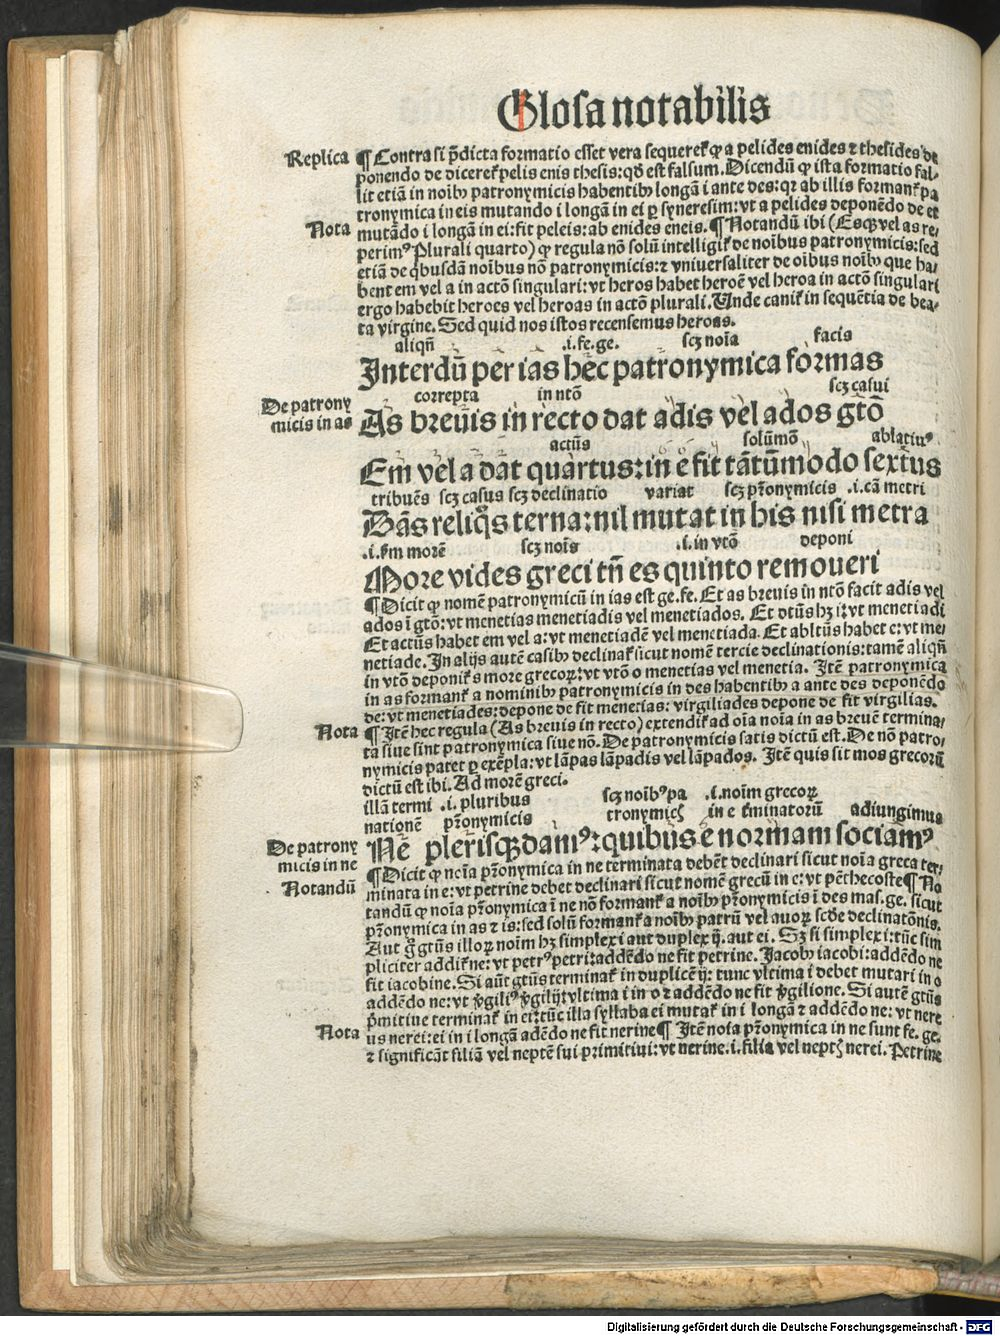 Glosa notabilis
Replica ¶ Contra si p̄dicta formatio esset vera sequeret̄ ꝙ a pelides enides ⁊ thesides de
ponendo de diceret̄ pelis enis thesis: qd̄ est falsum. Dicendū ꝙ ista formatio fal-
lit etiā in noībꝰ patronymicis habentibꝰ longā i ante des: qꝛ ab illis formant̄ pa
tronymica in eis mutando i longā in ei ꝑ syneresim: vt a pelides deponēdo de et
Nota mutādo i longā in ei: fit peleis: ab enides eneis. ¶ Notandū ibi (Esqꝫ vel as re-
perimꝰ Plurali quarto) ꝙ regula nō solū intelligit̄ de noībus patronymicis: sed
etiā de qbusdā noībus nō patronymicis: ⁊ vniuersaliter de oībus noībꝰ que ha-
bent em vel a in actō singulari: vt heros habet heroē vel heroa in actō singulari
ergo habebit heroes vel heroas in actō plurali. Unde canit̄ in sequētia de bea-
ta virgine. Sed quid nos istos recensemus heroas.
aliqn̄ .i. fe. ge. scꝫ noīa facis
Interdū per ias hec patronymica formas
correpta in ntō scꝫ casui
De patrony
micis in as
As breuis in recto dat adis vel ados gtō
actūs solūmō ablatiuꝰ
Em vel a dat quartus: in e fit tātūmodo sextus
tribuēs scꝫ casus scꝫ declinatio variat scꝫ pr̄onymicis .i. cā metri
Dās reliq̄s terna: nil mutat in his nisi metra
.i. fm morē scꝫ noīs .i. in vtō deponi
More vides greci tn̄ es quinto remoueri
¶ Dicit ꝙ nomē patronymicū in ias est ge. fe. Et as breuis in ntō facit adis vel
ados ī gtō: vt menetias menetiadis vel menetiados. Et dtūs hꝫ i: vt menetiadi
Et actūs habet em vel a: vt menetiadē vel menetiada. Et abltūs habet e: vt me-
netiade. In alijs autē casibꝰ declinat̄ sicut nomē tercie declinationis: tamē aliqn̄
in vtō deponit̄ s more grecoꝝ: vt vtō o menetias vel menetia. Itē patronymica
in as formant̄ a nominibꝰ patronymicis in des habentibꝰ a ante des deponēdo
de: vt menetiades: depone de fit menetias: virgiliades depone de fit virgilias.
Nota ¶ Itē hec regula (As breuis in recto) extendit̄ ad oīa noīa in as breuē termina-
ta siue sint patronymica siue nō. De patronymicis satis dictū est. De nō patro-
nymicis patet ꝑ exēpla: vt lāpas lāpadis vel lāpados. Itē quis sit mos grecorū
dictū est ibi. Ad morē greci.
illā termi .i. pluribus scꝫ noībꝰ pa .i. noīm grecoꝝ
nationē pr̄onymicis tronymicꝭ in e t̄minatorū adiungimus
De patrony
micis in ne
Nē plerisqꝫ damꝰ: quibus e normam sociamꝰ
¶ Dicit ꝙ noīa pr̄onymica in ne terminata debēt declinari sicut noīa greca ter-
Notandū minata in e: vt petrine debet declinari sicut nomē grecū in e: vt pēthecoste ¶ No
tandū ꝙ noīa pr̄onymica ī ne nō formant̄ a noībꝰ pr̄onymicis ī des mas. ge. sicut
pr̄onymica in as ⁊ is: sed solū formant̄ a noībꝰ patrū vel auoꝝ scd̄e declinatōnis.
Aut ḡ gtūs illoꝝ noīm hꝫ simplex i aut duplex ij. aut ei. Sꝫ si simplex i: tūc sim
pliciter addit̄ ne: vt petrꝰ petri: addēdo ne fit petrine. Jacobꝰ iacobi: addēdo ne
fit iacobine. Si aūt gtūs terminat̄ in duplicē ij: tunc vltima i debet mutari in o
addēdo ne: vt v̄giliꝰ v̄gilij: vltima i in o ⁊ addēdo ne fit v̄gilione. Si autē gtūs
p̄mitiue terminat̄ in ei: tūc illa syllaba ei mutat̄ in i longā ⁊ addēdo ne: vt nere
Nota us nerei: ei in i longā adēdo ne fit nerine ¶ Itē noīa pr̄onymica in ne sunt fe. ge.
⁊ significāt filiā vel neptē sui primitiui: vt nerine .i. filia vel neptꝭ nerei. Petrine
Digitalisierung gefördert durch die Deutsche Forschungsgemeinschaft - DFG